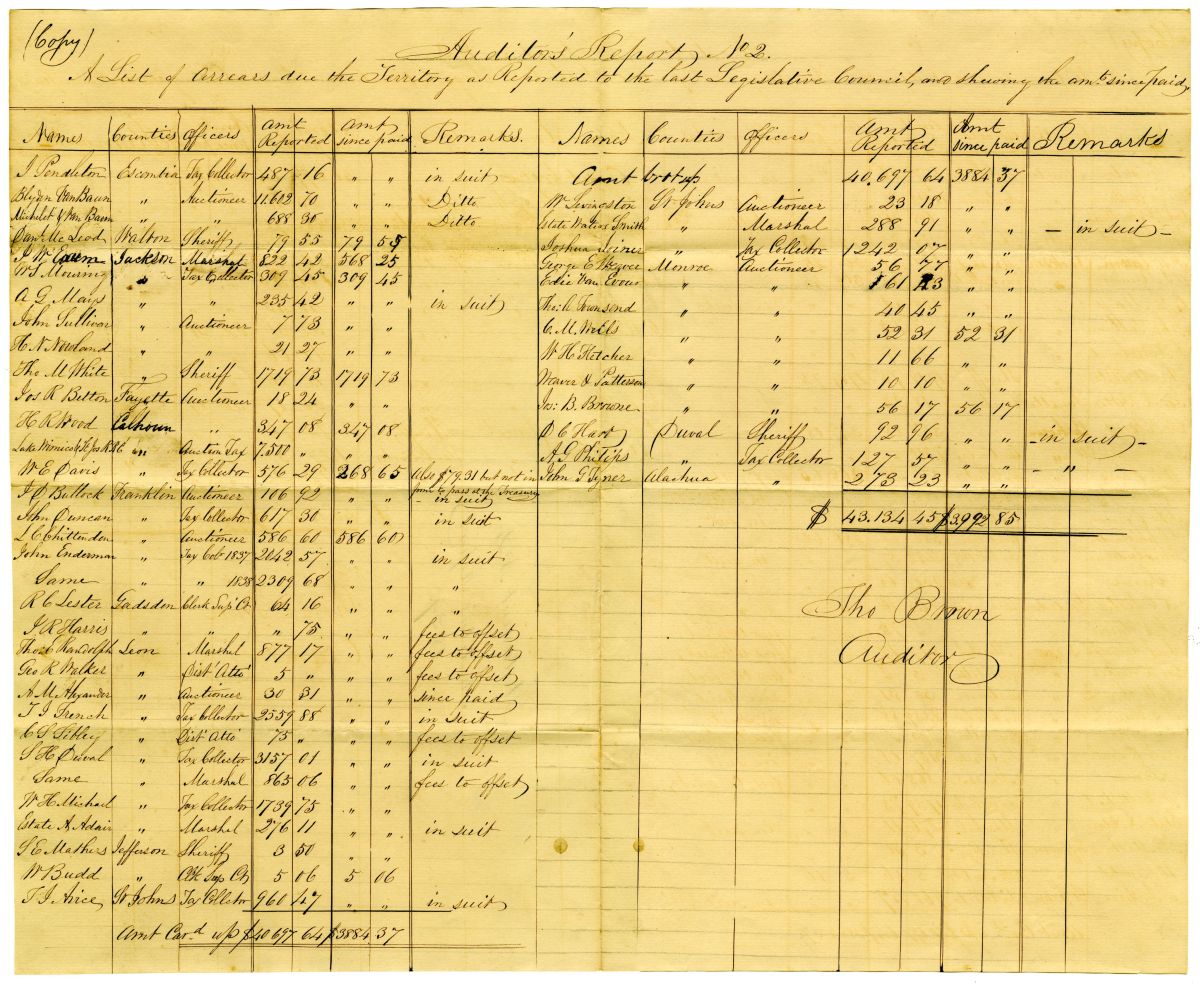 (Copy)
Auditor's Report No 2.
A List of arrears due the Territory as Reported to the last Legislative Council, and shewing the amt. since paid,
Names Counties Officers Amt Reported Amt since paid Remarks.
J Pendleton Escambia Tax Collector 487 16 " " in suit
Blyden Van Baun " Auctioneer 11.602 70 " " Ditto
Michelet & Van Baum " " 688 30 " " Ditto
Danl. McLeod Walton Sheriff 79 55 79 55
J W Jackson Marshal 822 42 568 25
W S Mourning " Tax Collector 309 45 309 45
A G Mays " " 235 42 " " in suit
John Sullivan " Auctioneer 7 73 " "
H. N. Newland " " 21 27 " "
Tho M White " Sheriff 1719 73 1719 73
Jos R Betton Fayette Auctioneer 18 24 " "
H R Wood Calhoun " 347 08 347 08
Lake Wimico & St Jos R R C " Auction Tax 7.500 " " "
W E Davis " Tax Collector 576 29 268 65 Also $79.31 but not in form to pass at the Treasury
J D Bullock Franklin Auctioneer 106 92 " " in suit
John Duncan " Tax Collector 617 30 " " in suit
L C Chittenden " Auctioneer 586 60 586 60
John Enderman " Tax Colr 1837 2042 57 " " in suit
Same " " 1838 2309 68 " " "
R C Lester Gadsden Clerk Sup Ct 64 16 " " "
J R Harris " " " 75 " " fees to offset
Tho. E Randolph Leon Marshal 877 17 " " fees to offset
Geo R Walker " Dist Atto 5 " " " fees to offset
A. M. Alexander " Auctioneer 30 31 " " since paid
T J French " Tax Collector 2559 88 " " in suit
C S Sibley " Dist Atto 75 " " " fees to offset
S H Duval " Tax Collector 3157 01 " " in suit
Same " Marshal 865 06 " " fees to offset
W H Michael " Tax Collector 1739 75 " "
Estate A. Adair " Marshal 276 11 " " in suit
S E Mathers Jefferson Sheriff 3 50 " "
W Budd " Clk Sup Ct 5 06 5 06
T J St Johns Tax Collector 960 47 " " in suit
Amt Card. up $40697 64 $3884 37
Names Counties Officers Amt Reported Amt since paid Remarks
Amt brot up 40.697 64 3884 37
W Livingston St Johns Auctioneer 23 18 " "
Estate Waters Smith " Marshal 288 91 " " - in suit -
Joshua Joiner " Tax Collector 1242 07 " "
George E Monroe Auctioneer 56 77 " "
Edie Van Evour " " 161 23 " "
Tho. A Townsend " " 40 45 " "
C. M. Wells " " 52 31 52 31
W H Fletcher " " 11 66 " "
Weaver & Patterson " " 10 10 " "
Jos: B. Browne " " 56 17 56 17
D C Hart Duval Sheriff 92 96 " " - in suit -
A. G Philips " Tax Collector 127 57 " " - " -
John G Tyner Alachua " 273 23 " "
$ 43.134 45 $3.992 85
Tho Brown
Auditor